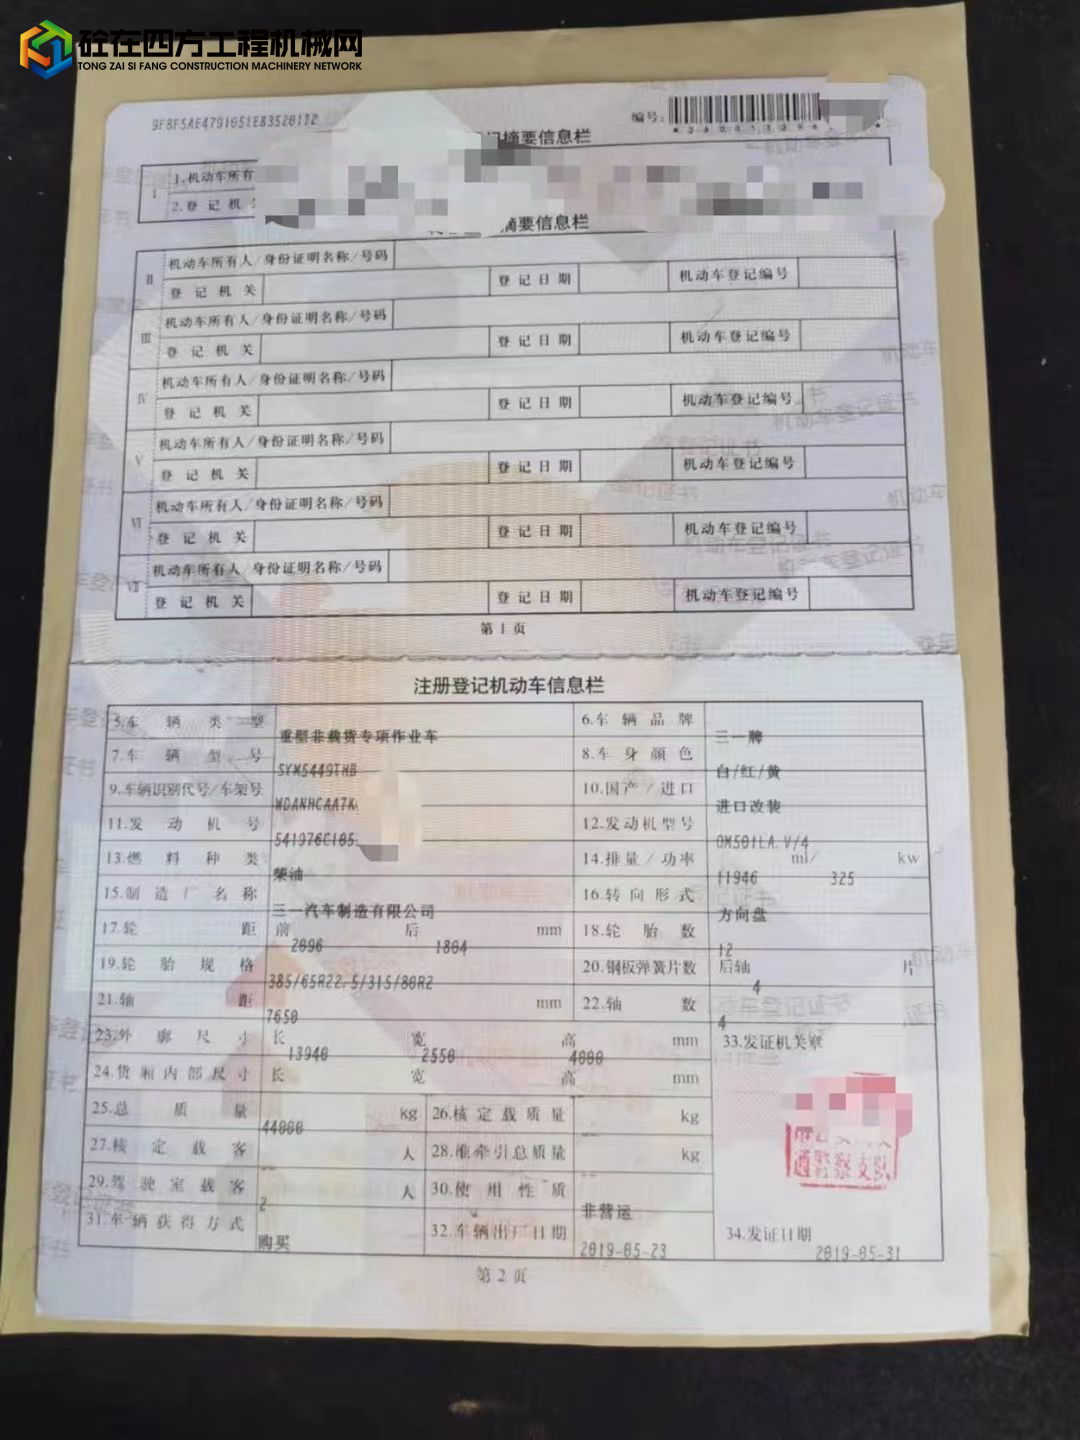 砼在四方工程机械网
TONG ZAI SI FANG CONSTRUCTION MACHINERY NETWORK
9F8F5AE4791051E83520122
编号:
摘要信息栏
I
1.机动车所有
2.登记机
摘要信息栏
II 机动车所有人/身份证明名称/号码
登记机关 登记日期 机动车登记编号
III 机动车所有人/身份证明名称/号码
登记机关 登记日期 机动车登记编号
IV 机动车所有人/身份证明名称/号码
登记机关 登记日期 机动车登记编号
V 机动车所有人/身份证明名称/号码
登记机关 登记日期 机动车登记编号
VI 机动车所有人/身份证明名称/号码
登记机关 登记日期 机动车登记编号
VII 机动车所有人/身份证明名称/号码
登记机关 登记日期 机动车登记编号
第1页
注册登记机动车信息栏
5.车辆类型 重型非载货专项作业车 6.车辆品牌 三一牌
7.车辆型号 SYM5449THB 8.车身颜色 白/红/黄
9.车辆识别代号/车架号 WDANHCAA7K 10.国产/进口 进口改装
11.发动机号 541976C105 12.发动机型号 OM501LA.V/4
13.燃料种类 柴油 14.排量/功率 11946 ml/ 325 kw
15.制造厂名称 三一汽车制造有限公司 16.转向形式 方向盘
17.轮距 前 2096 后 1804 mm 18.轮胎数 12
19.轮胎规格 385/65R22.5/315/80R2 20.钢板弹簧片数 后轴 4 片
21.轴距 7650 mm 22.轴数 4
23.外廓尺寸 长 13940 宽 2550 高 4000 mm 33.发证机关章
24.货厢内部尺寸 长 宽 高 mm
25.总质量 44000 kg 26.核定载质量 -- kg
27.核定载客 -- 人 28.准牵引总质量 -- kg
29.驾驶室载客 2 人 30.使用性质 非营运
31.车辆获得方式 购买 32.车辆出厂日期 2019-05-23 34.发证日期 2019-05-31
通警察支队
第2页